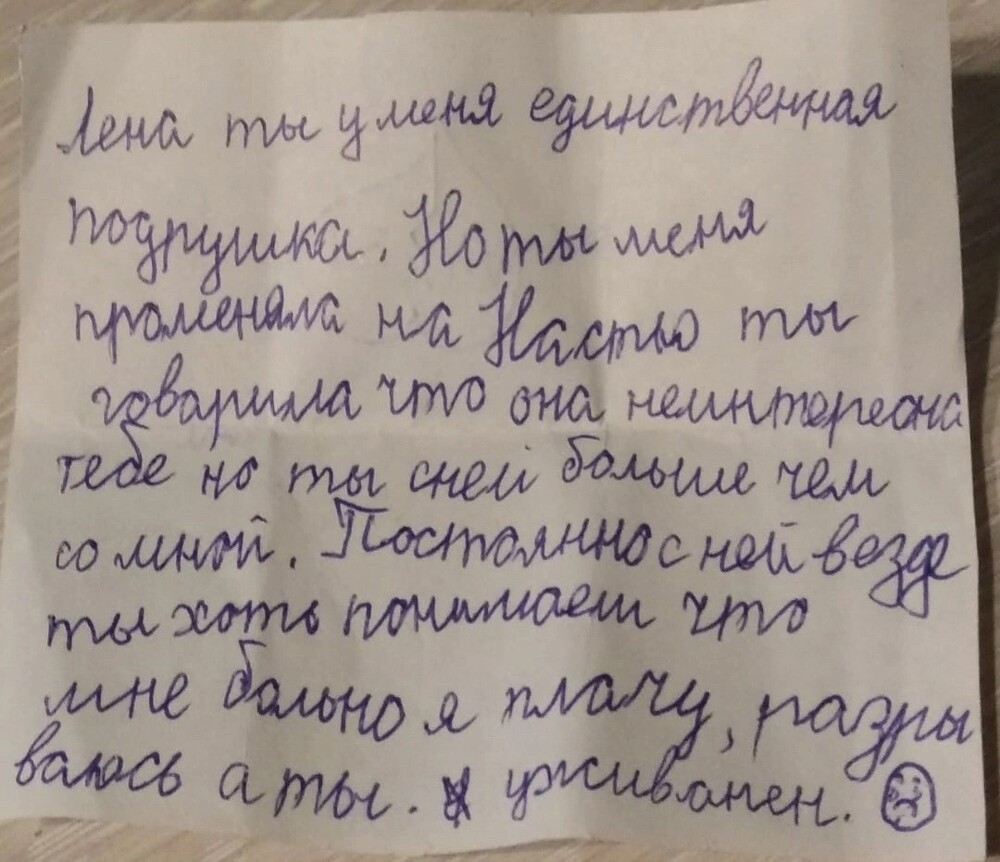 Лена ты у меня единственная
подрушка. Но ты меня
променяла на Настю ты
говарила что она неинтереона
тебе но ты сней больше чем
со мной. Постояннно с ней везде
ты хоть понимаеш что
мне больно я плачу, разры
ваюсь а ты.